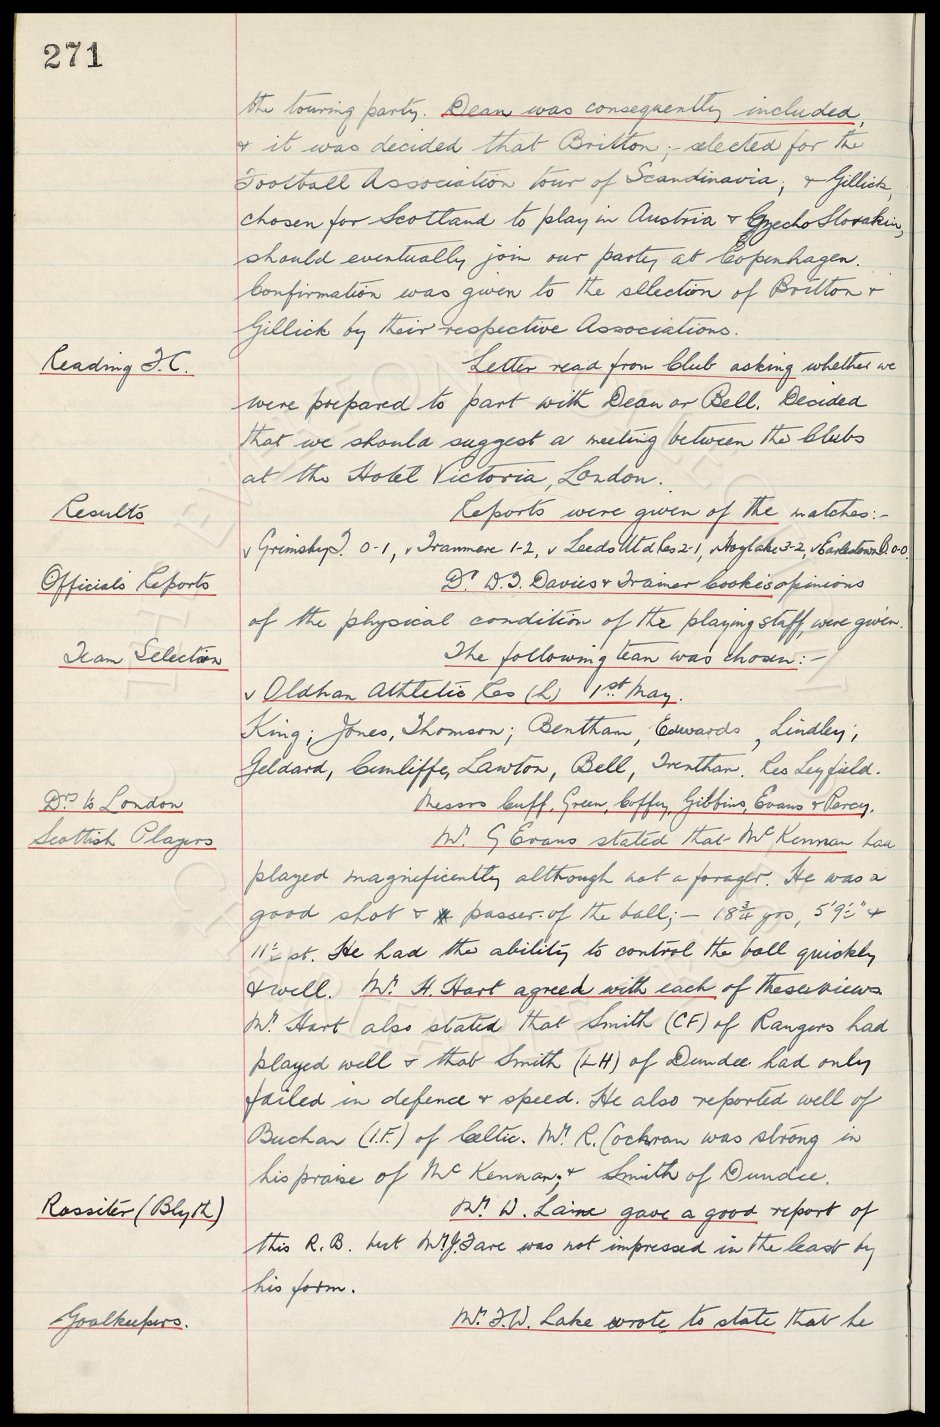 271
the touring party. Dean was consequently included,
& it was decided that Britton;- selected for the
Football Association tour of Scandinavia; & Gillick,
chosen for Scotland to play in Austria & Czecho Slovakia,
should eventually join our party at Copenhagen.
Confirmation was given to the selection of Britton &
Gillick by their respective Associations.
Reading F.C. Letter read from Club asking whether we
were prepared to part with Dean or Bell. Decided
that we should suggest a meeting between the Clubs
at the Hotel Victoria, London.
Results Reports were given of the matches:-
v Grimsby T. 0-1, v Tranmere 1-2, v Leeds Utd Res 2-1, v Hoylake 3-2, v Earlestown B. 0-0.
Officials Reports Dr. D.T. Davies & Trainer Cooke's opinions
of the physical condition of the playing staff, were given.
Team Selection The following team was chosen:-
v Oldham Athletic Res (L) 1st May.
King; Jones, Thomson; Bentham, Edwards, Lindley;
Geldard, Cunliffe, Lawton, Bell, Trentham. Res Leyfield.
Drs to London Messrs Cuff, Green, Coffey, Gibbins, Evans & Percy.
Scottish Players Mr. G Evans stated that McKennan had
played magnificently although not a forager. He was a
good shot & passer of the ball;- 18¾ yrs, 5'9½" &
11½ st. He had the ability to control the ball quickly
& well. Mr. H. Hart agreed with each of these views.
Mr. Hart also stated that Smith (CF) of Rangers had
played well & that Smith (LH) of Dundee had only
failed in defence & speed. He also reported well of
Buchan (I.F.) of Celtic. Mr. R. Cochran was strong in
his praise of McKennan, & Smith of Dundee.
Rossiter (Blyth) Mr. W. Laine gave a good report of
this R.B. but Mr J. Fare was not impressed in the least by
his form.
Goalkeepers. Mr. F.W. Lake wrote to state that he